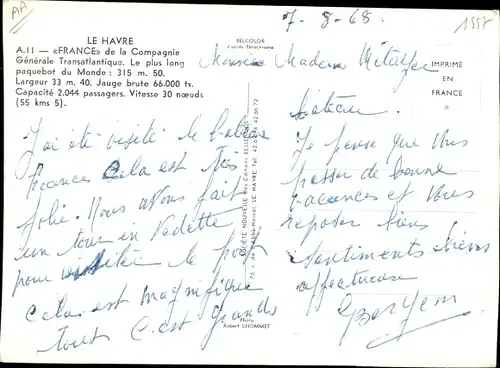 AA
7-8-68.
1557
LE HAVRE
A.11 — «FRANCE» de la Compagnie
Générale Transatlantique. Le plus long
paquebot du Monde : 315 m. 50.
Largeur 33 m. 40. Jauge brute 66.000 tx.
Capacité 2.044 passagers. Vitesse 30 nœuds
(55 kms 5).
BELCOLOR
IMPRIME
EN
FRANCE
Monsieur Madame
J'ai été visité le bateau
France Cela est très
jolie. Nous avons fait
un tour en Vedette
pour visitée le port
cela est magnifique
tout c'est grands
Photo
Robert LHOMMET
Je pense que vous
passer de bonne
vacances et vous
reposer bien
Sentiments biens
affectueuse